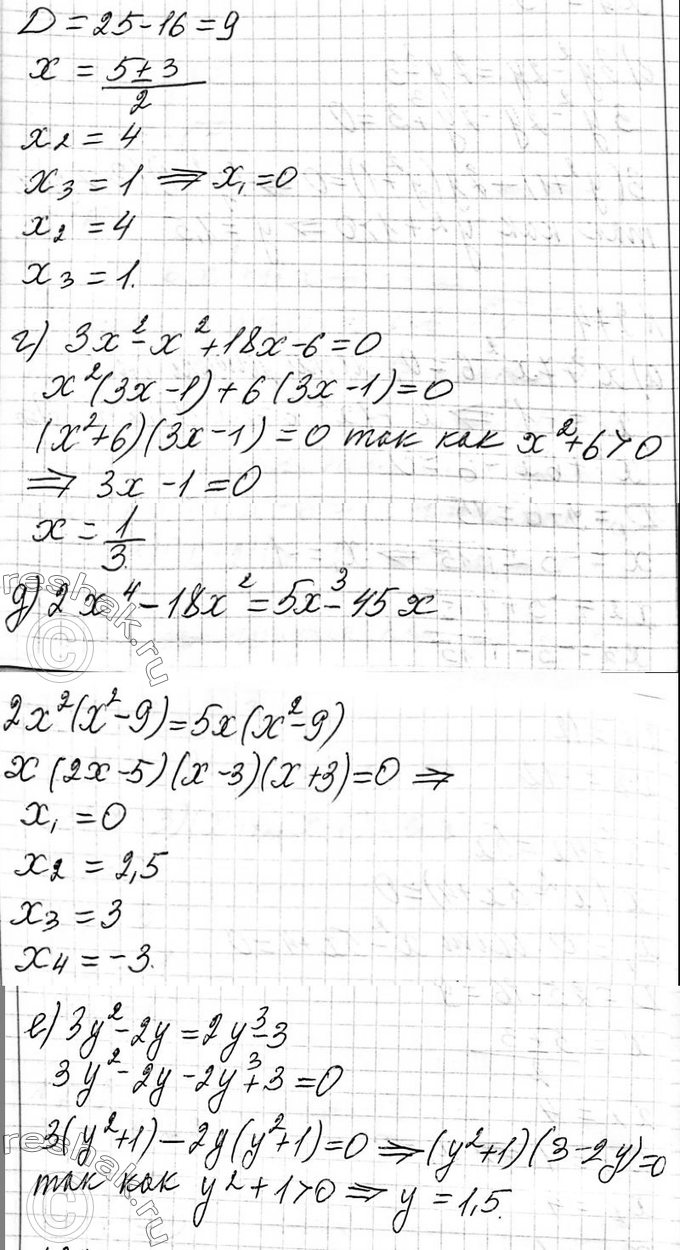 D = 25-16 = 9
x = (5±3)/2
x₂ = 4
x₃ = 1 ⇒ x₁ = 0
x₂ = 4
x₃ = 1.
г) 3x² - x² + 18x - 6 = 0
x²(3x - 1) + 6(3x - 1) = 0
(x² + 6)(3x - 1) = 0 так как x² + 6 > 0
⇒ 3x - 1 = 0
x = 1/3.
д) 2x⁴ - 18x² = 5x³ - 45x
reshak.ru
2x²(x² - 9) = 5x(x² - 9)
x(2x - 5)(x - 3)(x + 3) = 0 ⇒
x₁ = 0
x₂ = 2,5
x₃ = 3
x₄ = -3.
е) 3y² - 2y = 2y³ - 3
3y² - 2y - 2y³ + 3 = 0
3(y² + 1) - 2y(y² + 1) = 0 ⇒ (y² + 1)(3 - 2y) = 0
так как y² + 1 > 0 ⇒ y = 1,5.
reshak.ru